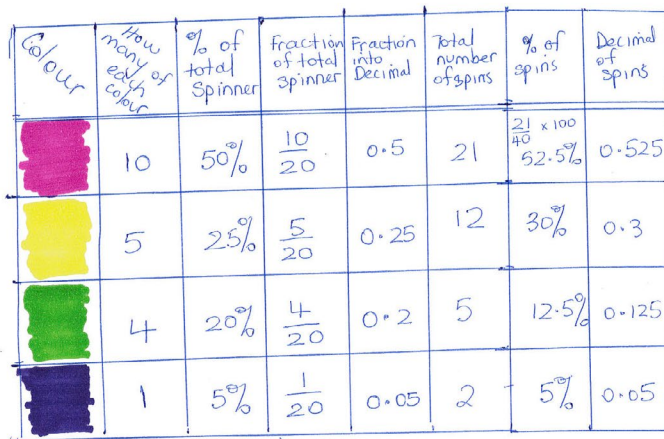 Colour
How many of each colour
% of total Spinner
Fraction of total spinner
Fraction into Decimal
Total number of spins
% of spins
Decimal of spins
10
50%
10/20
0.5
21
21/40 x 100
52.5%
0.525
5
25%
5/20
0.25
12
30%
0.3
4
20%
4/20
0.2
5
12.5%
0.125
1
5%
1/20
0.05
2
5%
0.05